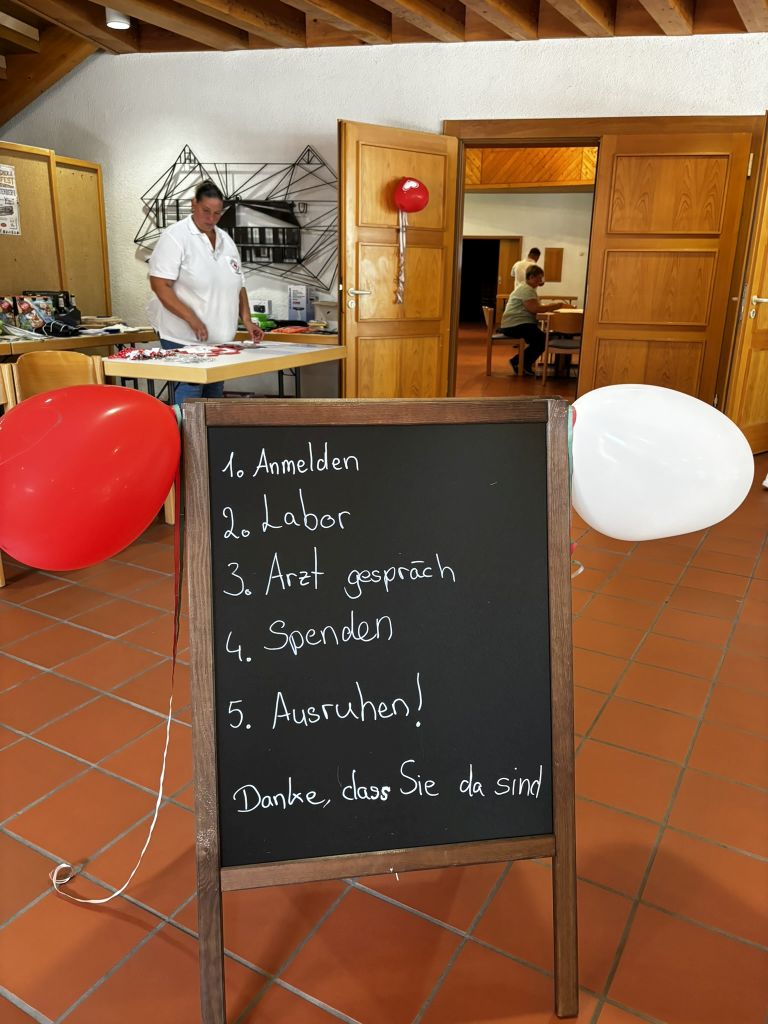 1. Anmelden
2. Labor
3. Arzt gespräch
4. Spenden
5. Ausruhen!
Danke, dass Sie da sind